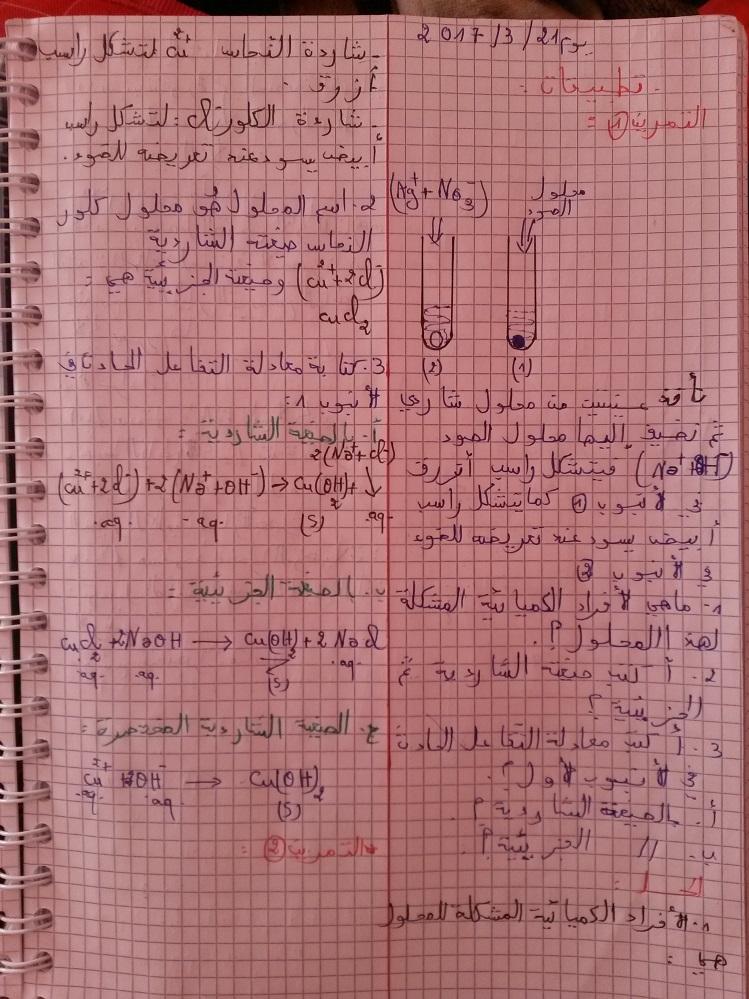 يوم 2017/3/21
تطبيقات :
التمرين ① =
محلول الصود
(Ag⁺ + No₃⁻)
(1)
(2)
نأخذ عينتين من محلول شاردي
ثم نضيف إليها محلول الصود
(Na⁺+OH⁻) فيتشكل راسب أزرق
في الأنبوب ① كما يتشكل راسب
أبيض يسود عند تعريضه للضوء
في الأنبوب ②
1- ماهي الأفراد الكميائية المشكلة
لهذا المحلول ؟.
2. أكتب صيغته الشاردية ثم
الجزيئية ؟
3. أكتب معادلة التفاعل الحادث
في الأنبوب الأول ؟.
أ. بالصيغة الشاردية ؟.
ب. // الجزيئية ؟.
الحل :
1. الأفراد الكميائية المشكلة للمحلول
هي :
- شاردة النحاس cu²⁺ لتشكل راسب
أزرق .
- شاردة الكلور cl⁻ : لتشكل راسب
أبيض يسود عند تعريضه للضوء.
2. اسم المحلول هو محلول كلور
النحاس صيغته الشاردية
(cu²⁺+2cl⁻) وصيغته الجزيئية هي :
cucl₂
3. كتابة معادلة التفاعل الحادث في
الأنبوب 1 :
أ- بالصيغة الشاردية :
(cu²⁺+2cl⁻) + 2(Na⁺+OH⁻) → Cu(OH)₂ + 2(Na⁺+cl⁻)
aq. aq. (S) aq.
ب. الصيغة الجزيئية :
cucl₂ + 2NaOH → Cu(OH)₂ + 2 Nacl
aq. aq. (S) aq.
ج. الصيغة الشاردية المختصرة :
cu²⁺ + 2OH⁻ → Cu(OH)₂
aq. aq. (S)
* التمرين ② :